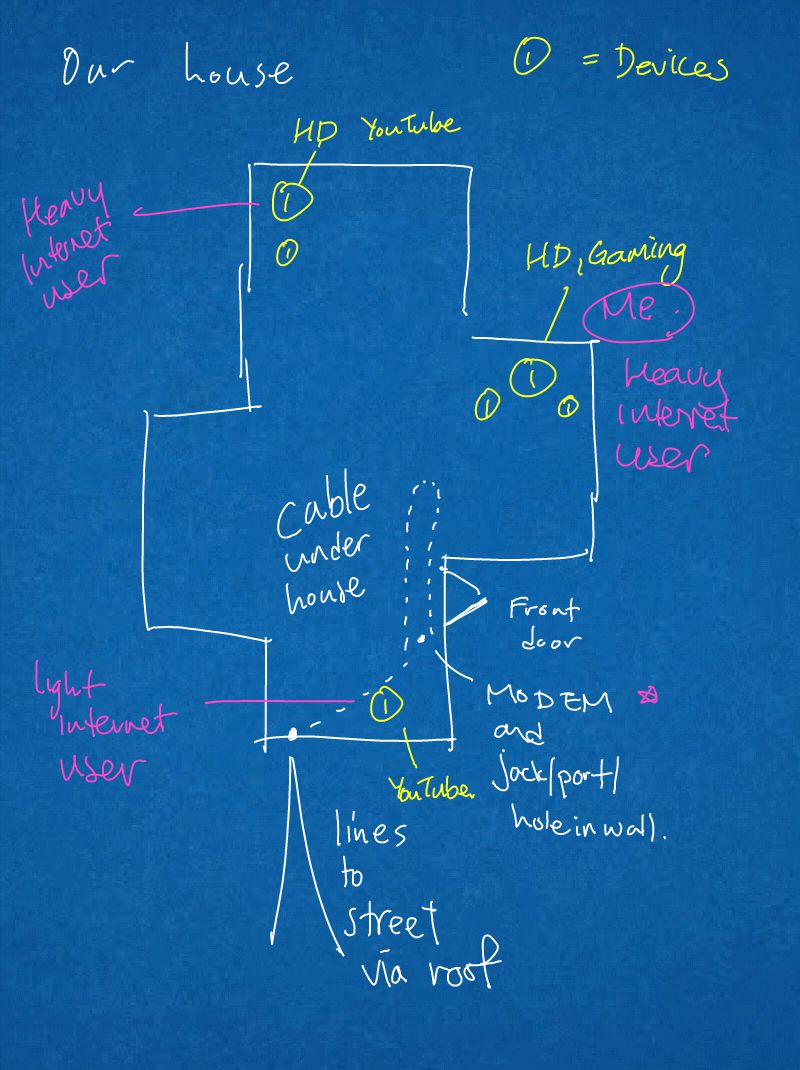 Our house
① = Devices
HD YouTube
Heavy
Internet
user
①
①
HD, Gaming
Me.
Heavy
internet
user
①
①
①
Cable
under
house
Front
door
light
internet
user
①
MODEM
and
jack/port/
hole in wall.
YouTube
lines
to
street
via roof